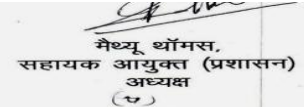 मैथ्यू थॉमस,
सहायक आयुक्त (प्रशासन)
अध्यक्ष